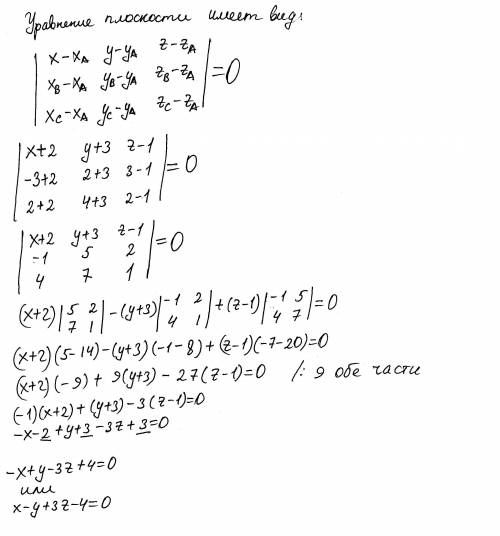 Уравнение плоскости имеет вид:
| x-x_A  y-y_A  z-z_A |
| x_B-x_A  y_B-y_A  z_B-z_A | =0
| x_C-x_A  y_C-y_A  z_C-z_A |
| x+2  y+3  z-1 |
| -3+2  2+3  3-1 | =0
| 2+2  4+3  2-1 |
| x+2  y+3  z-1 |
| -1  5  2 | =0
| 4  7  1 |
(x+2) |5 2; 7 1| -(y+3) |-1 2; 4 1| +(z-1) |-1 5; 4 7| =0
(x+2)(5-14)-(y+3)(-1-8)+(z-1)(-7-20)=0
(x+2)(-9)+9(y+3)-27(z-1)=0 /:9 обе части
(-1)(x+2)+(y+3)-3(z-1)=0
-x-2+y+3-3z+3=0
-x+y-3z+4=0
или
x-y+3z-4=0